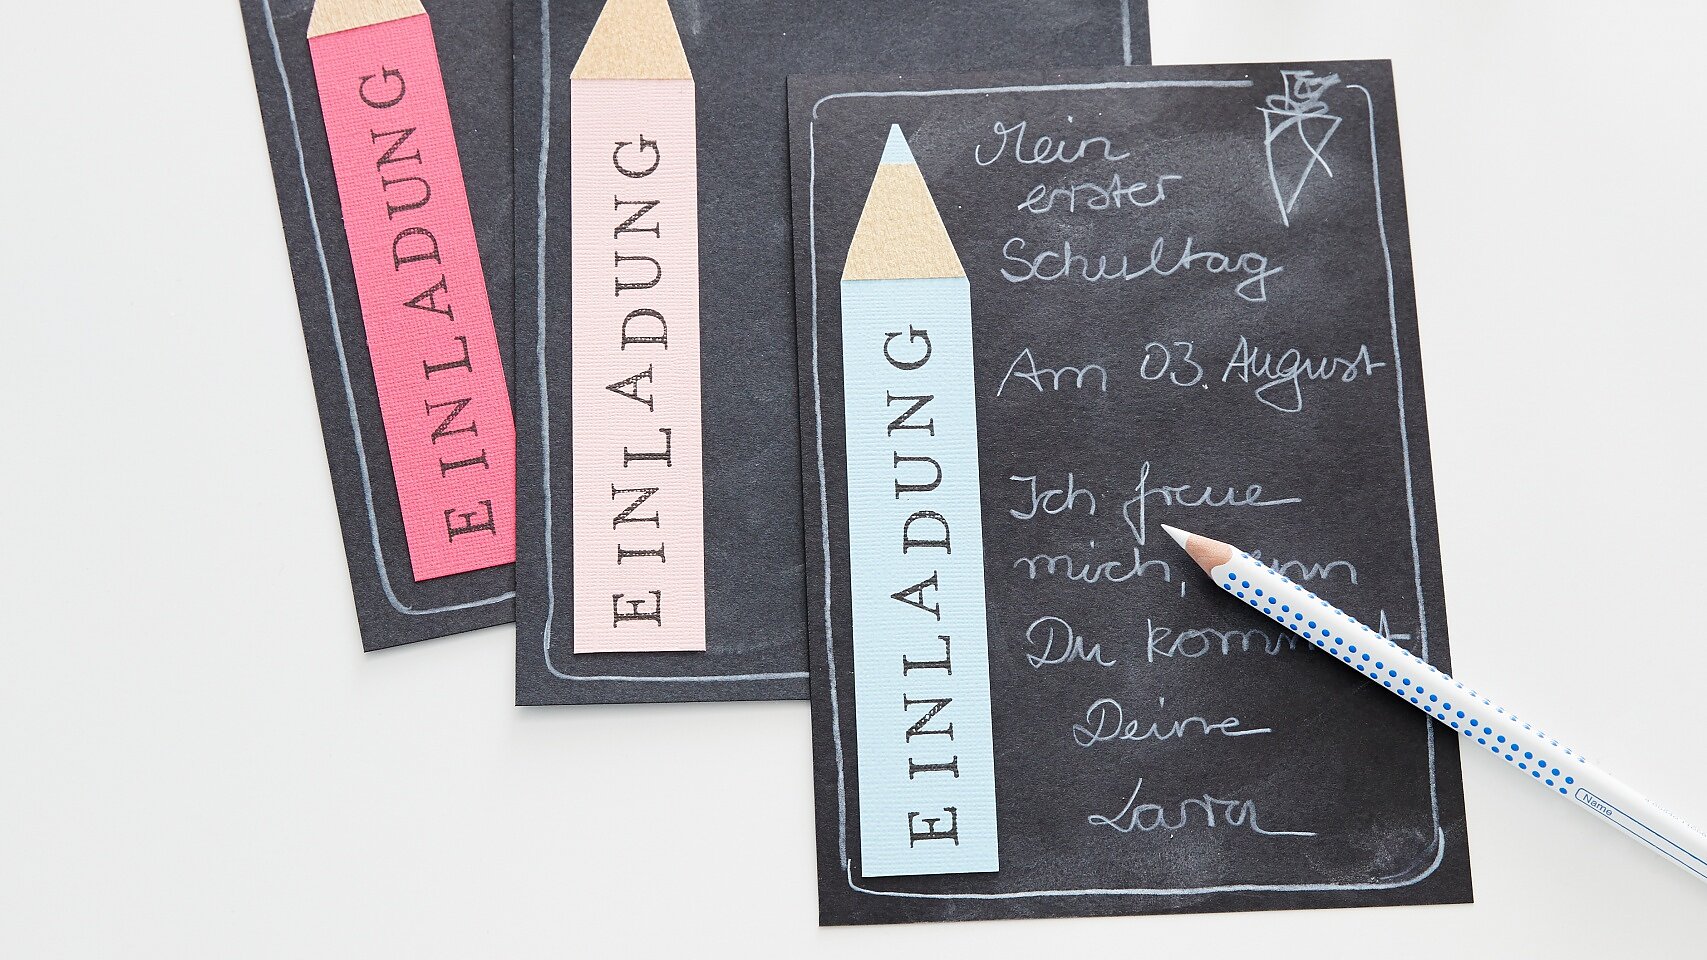 EINLADUNG
EINLADUNG
EINLADUNG
Mein
erster
Schultag
Am 03. August
Ich freue
mich,
Du kommst
Deine
Lara
Name